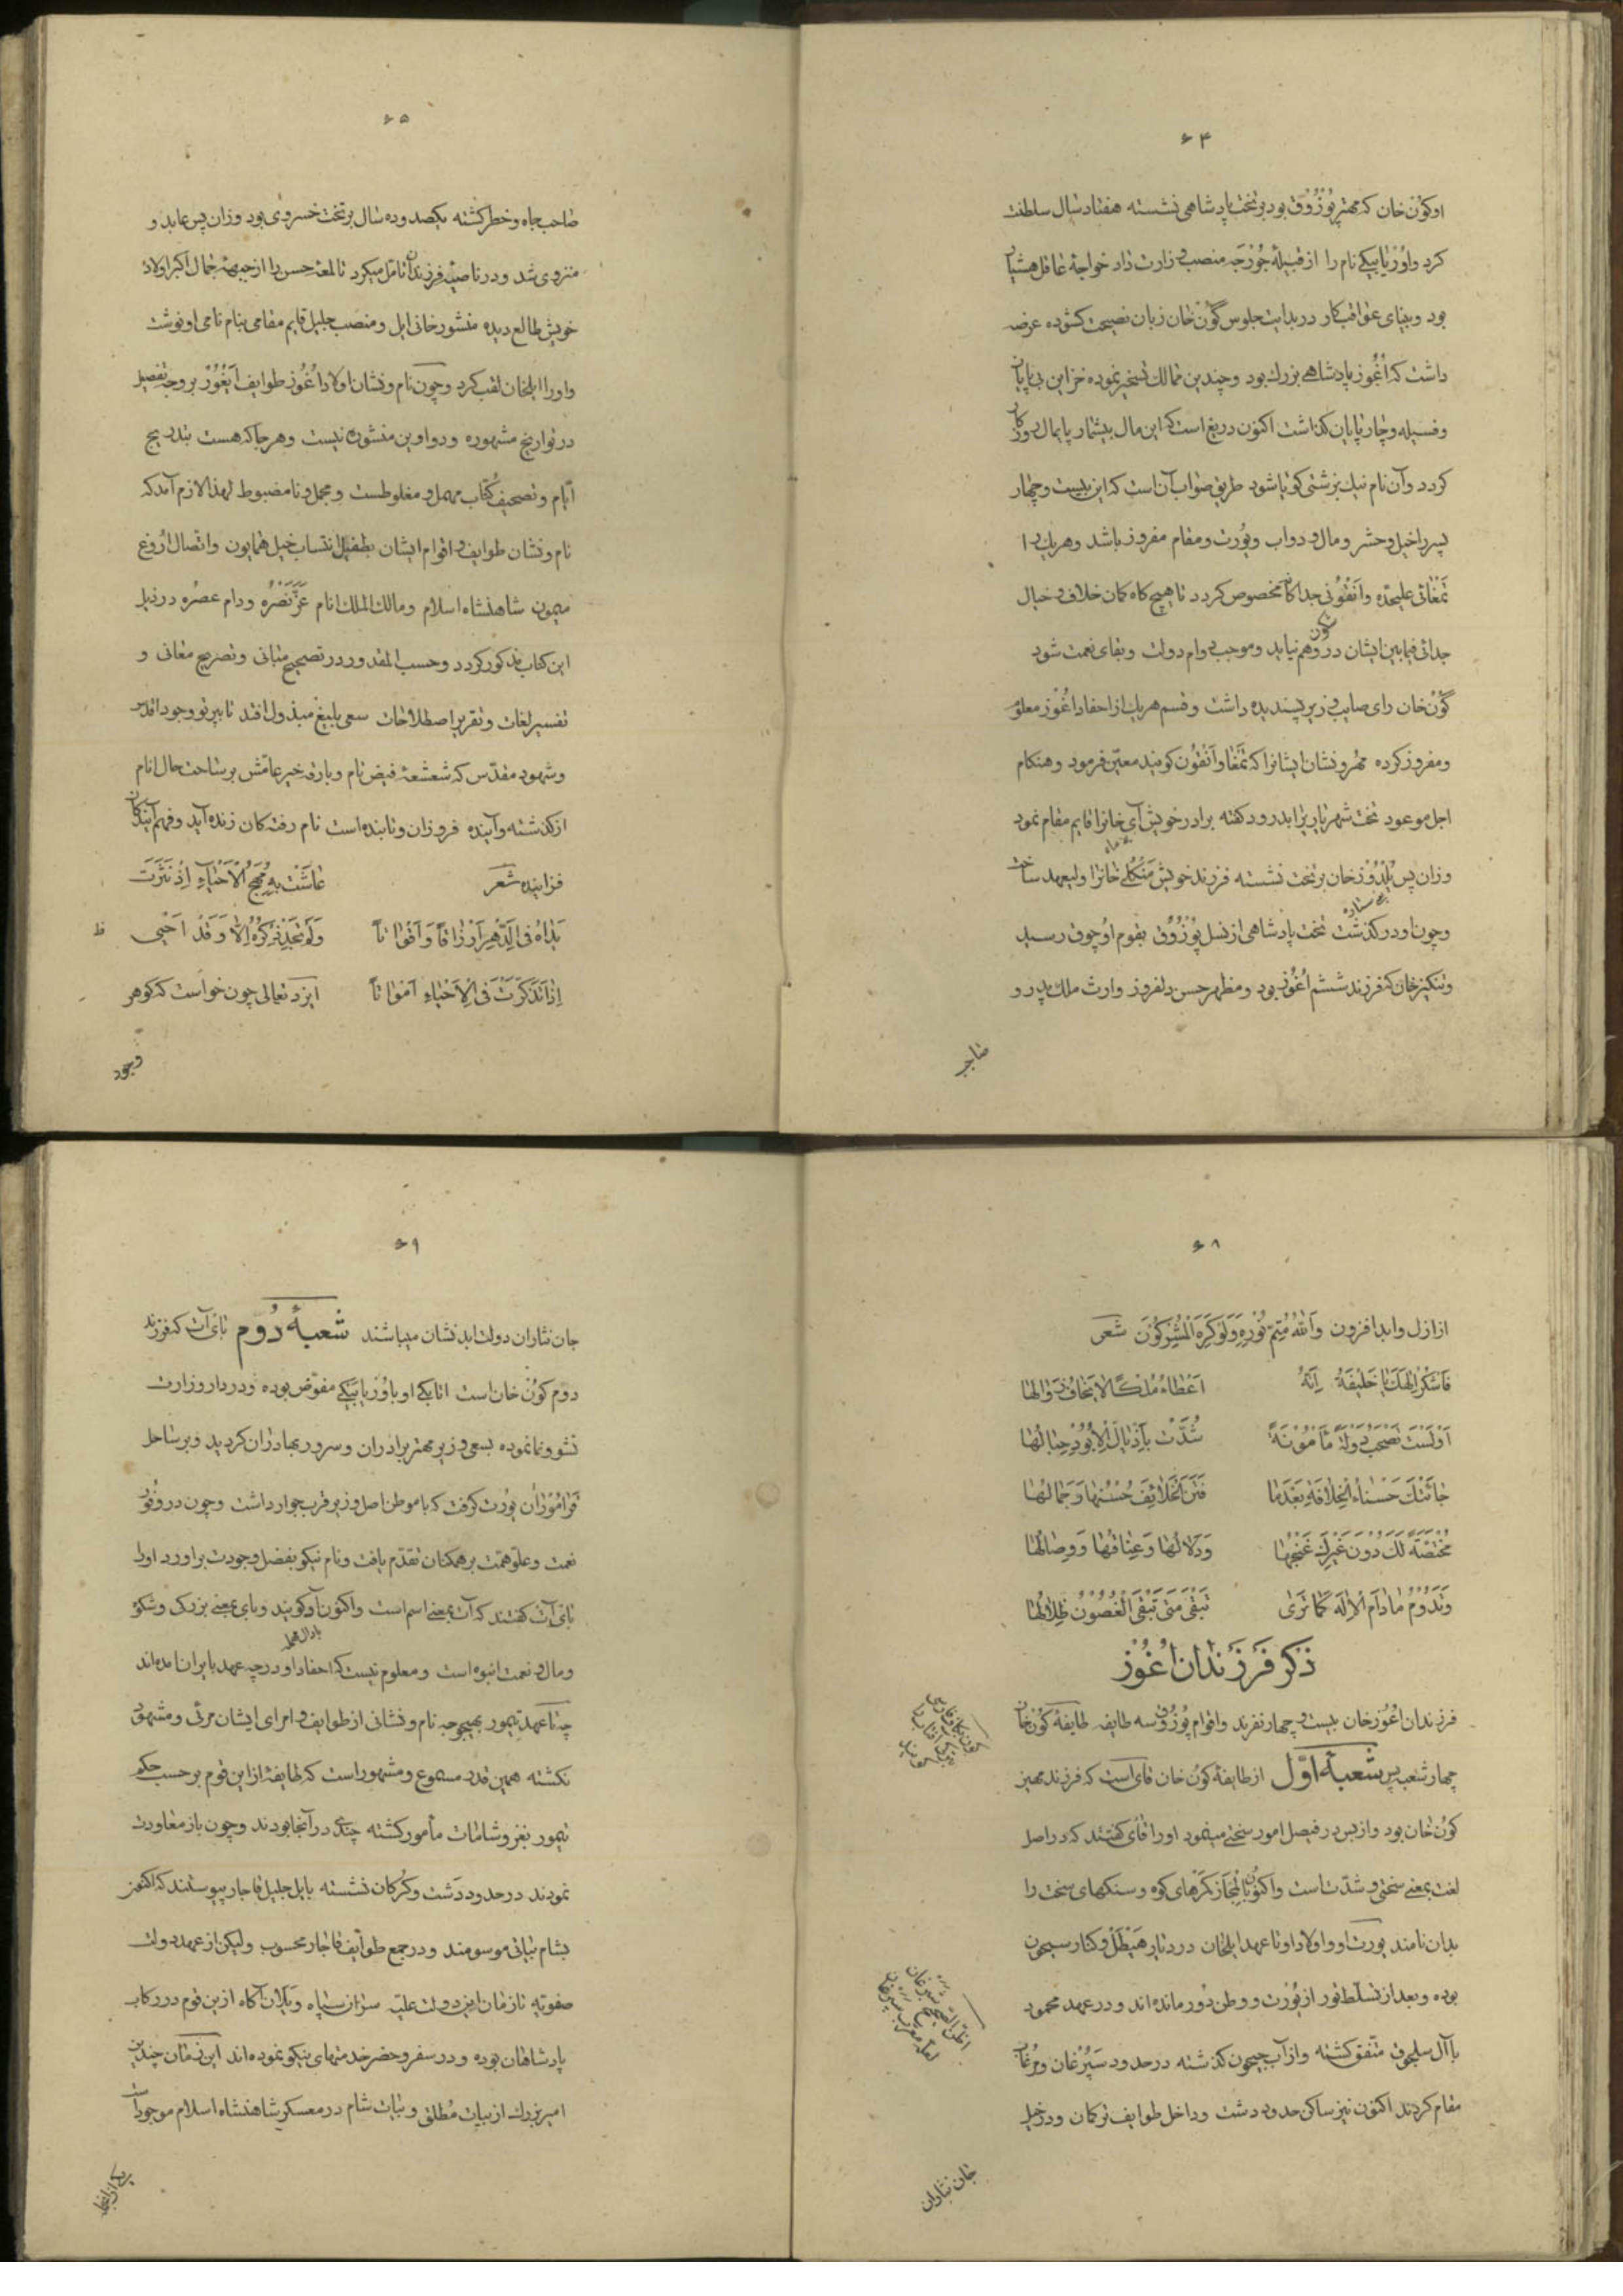 ۶۴
اوکون خان که مهتر پوزوق بود بر تخت پادشاهی نشسته هفتاد سال سلطنت
کرد و اوزیا بیکی نام را از قبیله جورجه منصب وزارت داد خواجهٔ عاقل هشیار
بود و بینای عواقب کار در بدایت جلوس گون خان زبان نصیحت کشوده عرضه
داشت که اُغُوز پادشاهی بزرک بود و چندین ممالک تسخیر نموده خزاین بی پایان
و فسیله و چارپایان کذاشت اکنون دریغ است که این مال بیشمار پایمال روزکار
کردد و آن نام نیک بزشتی کویا شود طریق صواب آن است که این بیست و چهار
پسر را خیل و حشر و مال و دواب و یورت و مقام مفروز باشد و هر یک را
تمغائی علیحده و اُنقونی جداکانه مخصوص کردد تا هیچ کاه کمان خلاف و خیال
جدائی فیما بین ایشان در وهم نیاید و موجب دوام دولت و بقای نعمت شود
گون خان رای صایب وزیر پسندیده داشت و قسم هر یک از احفاد اُغُوز معلوم
و مفروز کرده مهر و نشان ایشانرا که تمغا و اُنقون کویند معین فرمود و هنکام
اجل موعود تخت شهریاریرا بدرود کفته برادر خویش آی خانرا قایم مقام نمود
وزان پس یُلدُوز خان بر تخت نشسته فرزند خویش منکلی خانرا ولیعهد ساخت
و چون او درکذشت تخت پادشاهی از نسل پوزوق بقوم اوچوق رسید
و تنکیز خان که فرزند ششم اُغُوز بود و مظهر حسن دلفروز وارث ملک پدر و
صاحب
۶۵
صاحب جاه و خطر کشته یکصد و ده سال بر تخت خسروی بود وزان پس عابد و
منزوی شد و در ناصیهٔ فرزندان تامل میکرد تا لمعهٔ حسن را از جبههٔ جمال اکبر اولاد
خویش طالع دیده منشور خانی ایل و منصب جلیل قایم مقامی بنام نامی او نوشت
و اورا ایلخان لقب کرد و چون نام و نشان اولاد اُغُوز و طوایف ایغور بر وجه تفصیل
در تواریخ مشهوره و دواوین منشوره نیست و هر جا که هست بتدریج
ایام و تصحیف کتاب مهمل و مغلوطست و مجمل و نامضبوط لهذا لازم آمد که
نام و نشان طوایف و اقوام ایشان بطفیل انتساب خیل همایون و اتصال اروغ
میمون شاهنشاه اسلام و مالک الملک انام عَزَّ نَصْرُه و دام عصره در ذیل
این کتاب مذکور کردد و حسب المقدور در تصحیح مبانی و تصریح معانی و
تفسیر لغات و تقریر اصطلاحات سعی بلیغ مبذول افتد تا بپرتو وجود اقدس
و شهود مقدس که شعشعهٔ فیض تام و بارقهٔ خیر عامش بر ساحت حال انام
از کذشته و آینده فروزان و تابنده است نام رفتکان زنده آید و فهم آیندکان
فزاینده شعر عاشَتْ بِهِ مُهَجُ الْاَحْیاءِ اِذْ نَثَرَتْ
یَداهُ فی الدَّهرِ اَرْزاقاً وَ اَقْواتاً وَلَم نَجِدْ ذِکرَهُ اِلّا وَ قَدْ اَحْیی
اِذا تَذَکَّرتَ فی الْاَحْیاءِ اَمْواتاً ایزد تعالی چون خواست که کوهر
وجود
۶۸
از ازل و ابد افزون وَ اللهُ مُتِمُّ نُورِهِ وَلَو کَرِهَ المُشرِکُونَ شعر
فَاشکُر اِلهَکَ یا خَلیفَةُ اِنَّهُ اَعْطاءُ مُلْکاً لا یَخافُ زَوالَها
اَوَلَسْتَ تَصْحَبُ دَولَةً مَأْمُونَةً شُدَّتْ بِاَذْیالِ الْاُبُودِ حِبالُها
جائَتْکَ حَسْناءُ الخِلافَةِ بَعْدَما فَتَنَ الْخَلائِفَ حُسْنُها وَ جَمالُها
مُخْتَصَّةً لَکَ دُونَ غَیرِکَ غَنْجُها وَ دَلالُها وَ عِناقُها وَ وِصالُها
وَ تَدُومُ ما دامَ الْاِلهُ کَما تَری تَبْقی مَتی تَبْقَی الْغُصُونُ ظِلالُها
ذکر فرزندان اُغُوز
فرزندان اُغُوز خان بیست و چهار نفرند و اقوام پوزوق سه طایفه طایفهٔ کون خان
چهار شعبه پس شعبهٔ اوّل از طایفهٔ کون خان قای است که فرزند مهین
کون خان بود و از بس در فیصل امور سختی مینمود اورا قای کفتند که در اصل
لغت بمعنی سختی و شدت است و اکنون بالمجاز کمرهای کوه و سنکهای سخت را
بدان نامند یورت او و اولاد او تا عهد ایلخان در دیار هیطل و کنار سیحون
بوده و بعد از تسلط تور از یورت و وطن دور مانده اند و در عهد محمود
با آل سلجوق متفق کشته و از آب جیحون کذشته در حدود سپرغان و مرغاب
مقام کردند اکنون نیز ساکن حدود دشت و داخل طوایف ترکمان و در خیل
جان نثاران
۶۹
جان نثاران دولت ابد نشان میباشند شعبهٔ دُوم بای آت که فرزند
دوم کون خان است اتابکی او با اوزیا بیکی مفوّض بوده و در دار وزارت
نشو و نما نموده بسعی وزیر مهتر برادران و سرور بهادران کردید و بر ساحل
قراموران یورت کرفت که با موطن اصل وزیر قرب جوار داشت و چون در وفور
نعمت و علو همت بر همکنان تقدم یافت و نام نیکو بفضل و جودت برآورد اورا
بای آت کفتند که آت بمعنی اسم است و اکنون آد کویند و بای بمعنی بزرک و شکوه
بادال مهمله
و مال و نعمت انبوه است و معلوم نیست که احفاد او در چه عهد بایران آمده اند
چه تا عهد تیمور بهیچوجه نام و نشانی از طوایف و امرای ایشان مرئی و مشهود
نکشته همین قدر مسموع و مشهور است که طایفهٔ از این قوم بر حسب حکم
تیمور بغزو شامات مأمور کشته چندی در آنجا بودند و چون باز معاودت
نمودند در حدود دشت و کرکان نشسته بایل جلیل قاجار پیوستند که اکنون
بشام بیاتی موسومند و در جمع طوایف قاجار محسوب ولیکن از عهد دولت
صفویه تا زمان این دولت علیه سرداران سپاه و یلان آکاه ازین قوم در رکاب
پادشاهان بوده و در سفر و حضر خدمتهای نیکو نموده اند این زمان چندین
امیر بزرک از بیات مُطلق و بیات شام در معسکر شاهنشاه اسلام موجود است
یکی از آنها